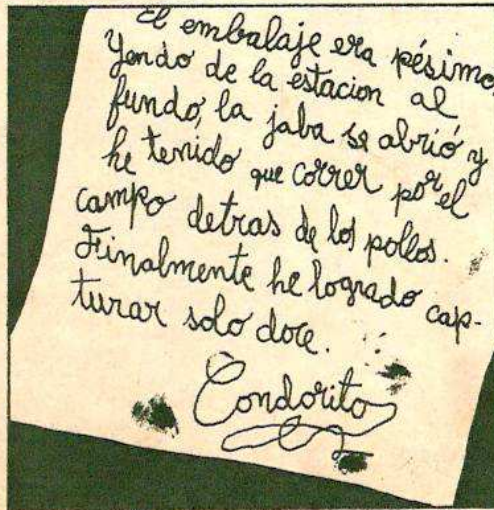 El embalaje era pésimo.
Yendo de la estacion al
fundo, la jaba se abrió y
he tenido que correr por el
campo detras de los pollos.
Finalmente he logrado cap-
turar solo doce.
Condorito